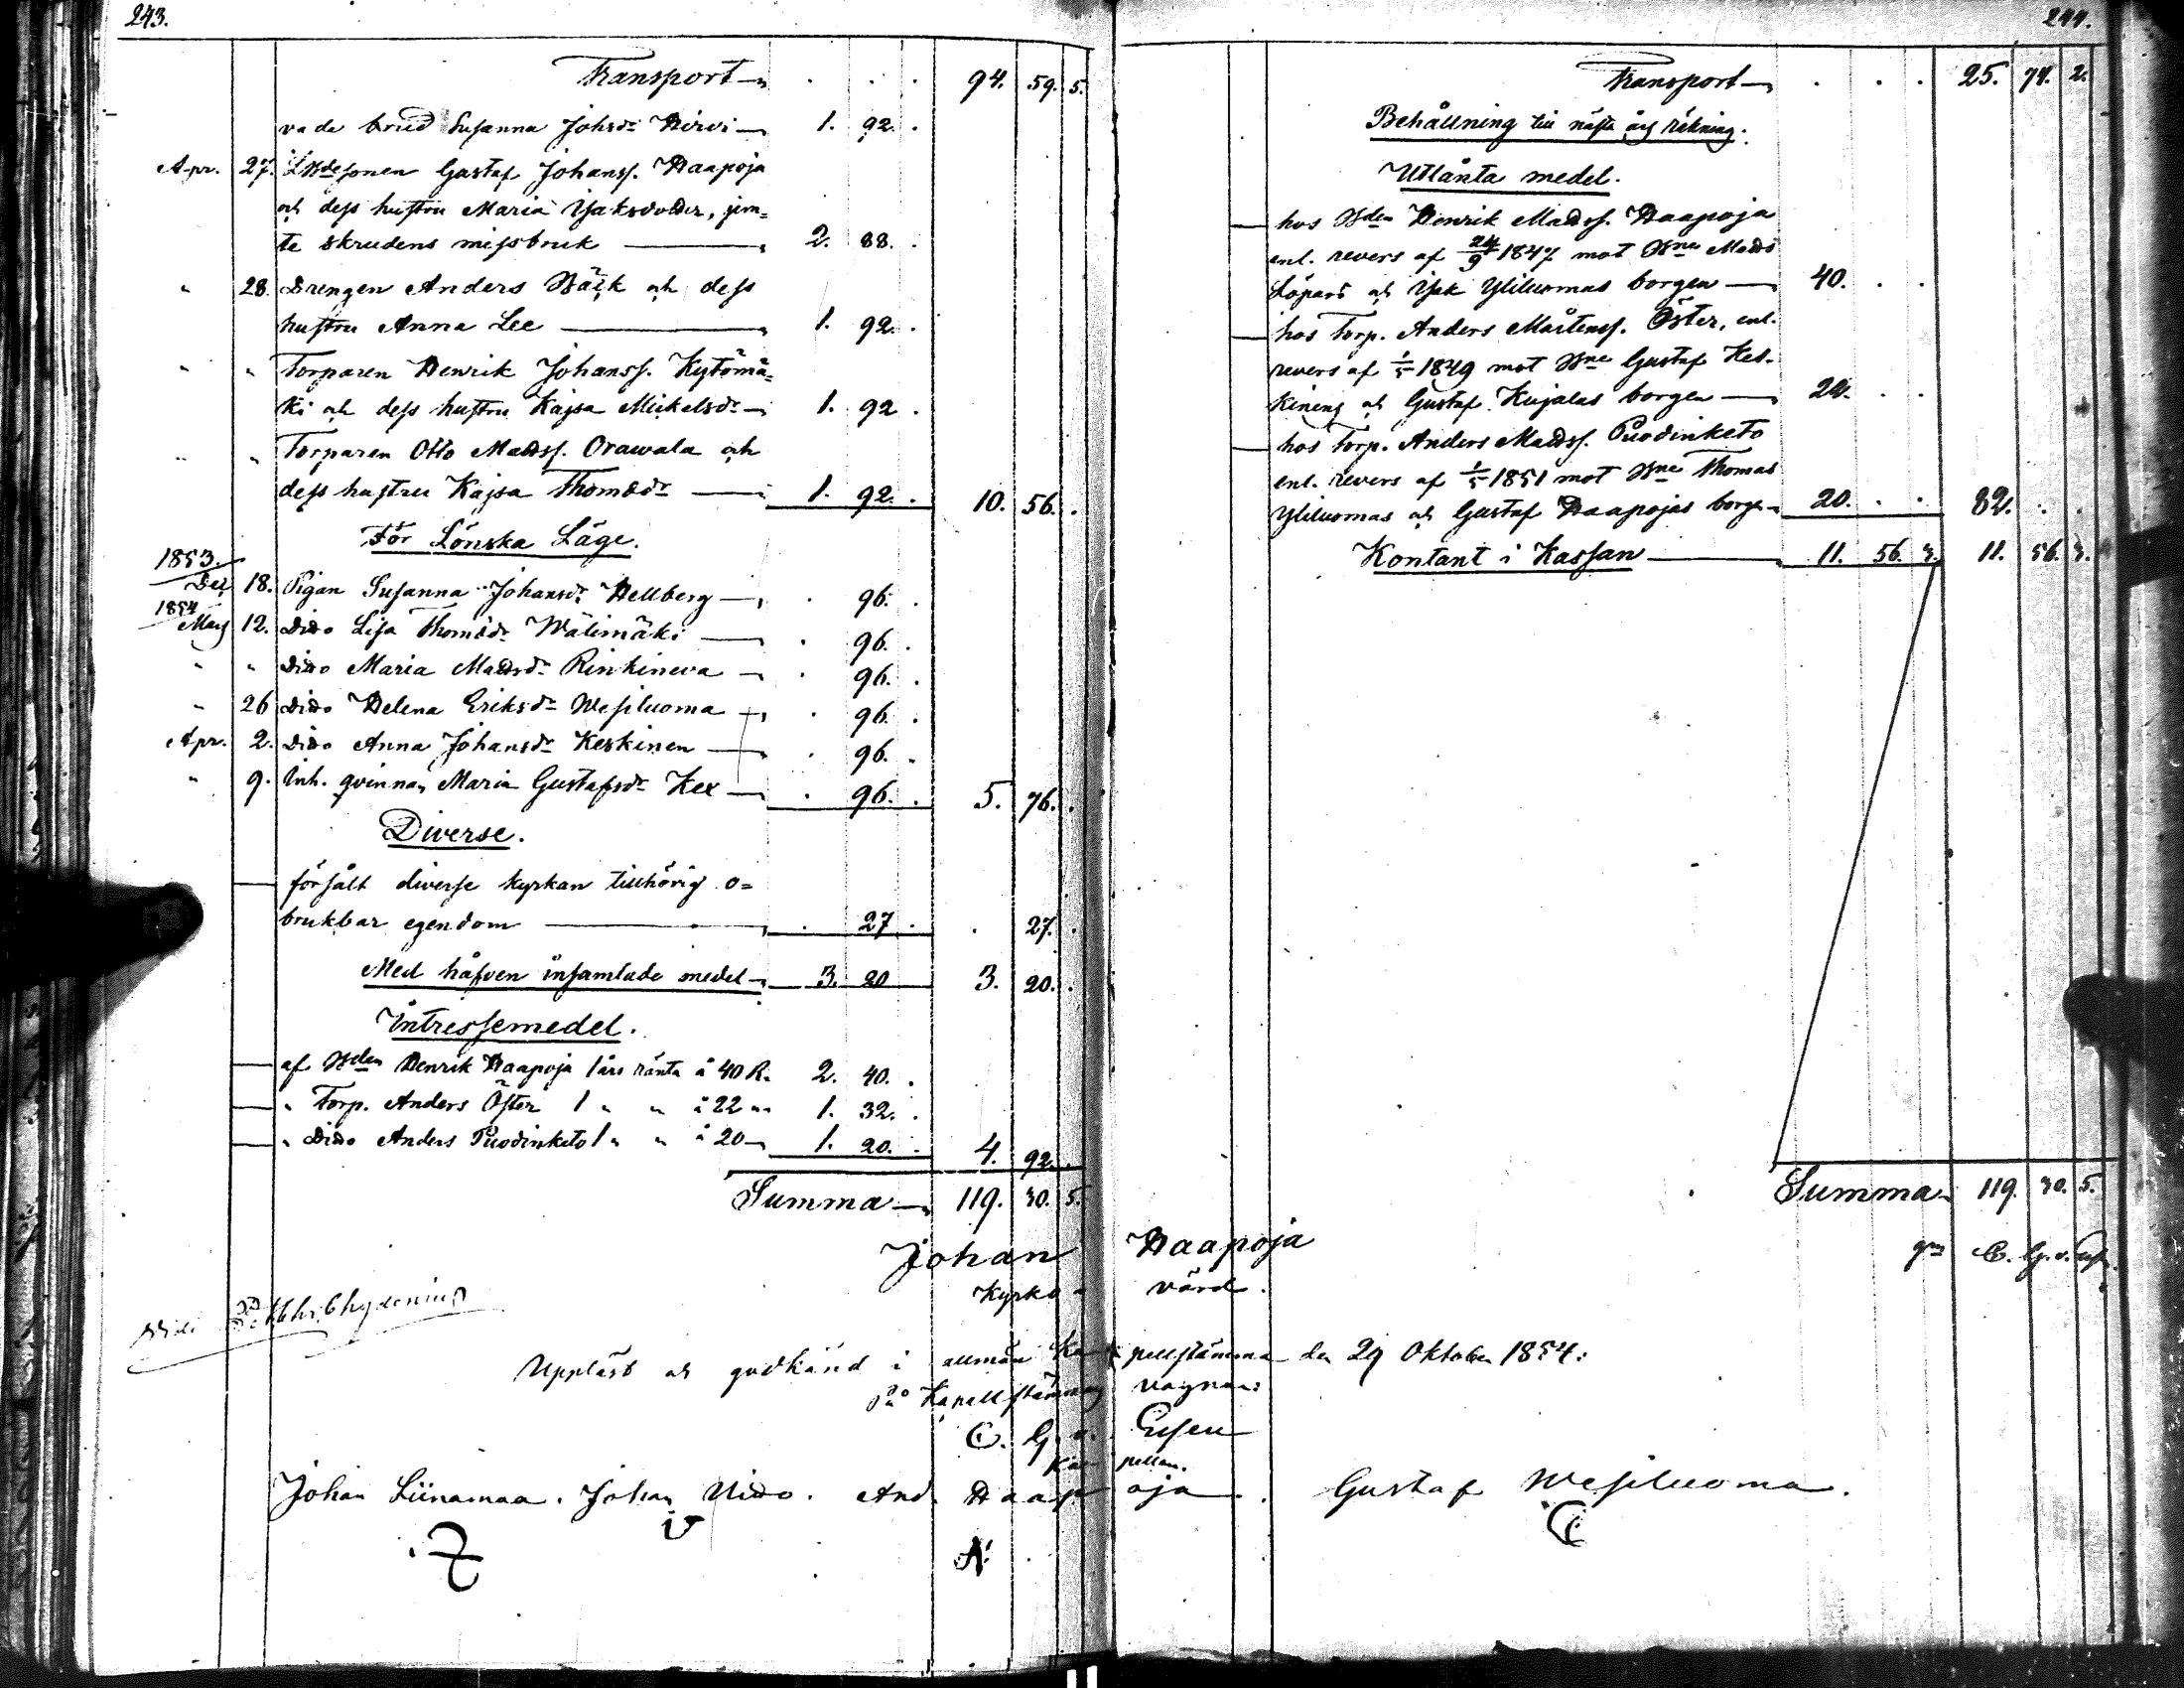 243.
Transport . . . 94. 59. 5.
vade brud Susanna Johsdr Hirvi 1. 92. .
Apr. 27. Bdesonen Gustaf Johanss. Haapoja
och dess hustru Maria Isaksdotter, jem=
te skrudens missbruk 2. 88. .
" 28. Drengen Anders Bäck och dess
hustru Anna Lee 1. 92. .
" " Torparen Henrik Johanss. Kytömä=
ki och dess hustru Kajsa Mickelsdr 1. 92 .
" " Torparen Otto Matss. Orawala och
dess hustru Kajsa Thomsdr 1. 92. . 10. 56. .
För Lönska Läge.
1853
Dec 18. Pigan Susanna Johansdr Hellberg . 96. .
1854
Mars 12. Dito Lisa Thomsdr Wälimäki . 96. .
" " Dito Maria Mattsdr Rinkineva . 96. .
" 26 Dito Helena Eriksdr Wesiluoma . 96. .
Apr. 2. Dito Anna Johansdr Keskinen . 96. .
" 9. Inh. qvinnan Maria Gustafsdr Kex . 96. . 5. 76. .
Diverse.
försålt diverse kyrkan tillhörig o=
brukbar egendom . 27 . . 27. .
Med håfven insamlade medel 3. 20 3. 20. .
Intressemedel.
af Bden Henrik Haapoja 1 års ränta å 40 R. 2. 40. .
" Torp. Anders Öster 1 " " å 22 " 1. 32. .
" Dito Anders Puodinketo 1 " " å 20 1. 20. . 4. 92. .
Summa 119. 30. 5.
244.
Transport . . . 25. 74. 2.
Behållning till nästa års räkning.
Utlånta medel.
hos Bden Henrik Matss. Haapoja
enl. revers af 24/9 1847 mot Bne Matts
Löpars och Isak Yliluomas borgen 40. . .
hos Torp. Anders Mårtenss. Öster, enl.
revers af 1/5 1849 mot Bne Gustaf Kes-
kinens och Gustaf Kujalas borgen 22. . .
hos Torp. Anders Matss. Puodinketo
enl. revers af 1/5 1851 mot Bne Thomas
Yliluomas och Gustaf Haapojas borgen 20. . . 82. . .
Kontant i Kassan 11. 56. 3. 11. 56. 3.
Summa 119. 30. 5.
Johan Haapoja
Kyrko- värd.
Vidi
Uppläst och godkänd i allmän kapellstämma den 29 Oktober 1854:
På Kapellstämmans vägnar:
C. G. v. Essen
Kapellan.
Johan Liinamaa. Johan Nisto. And. Haapoja. Gustaf Wesiluoma.